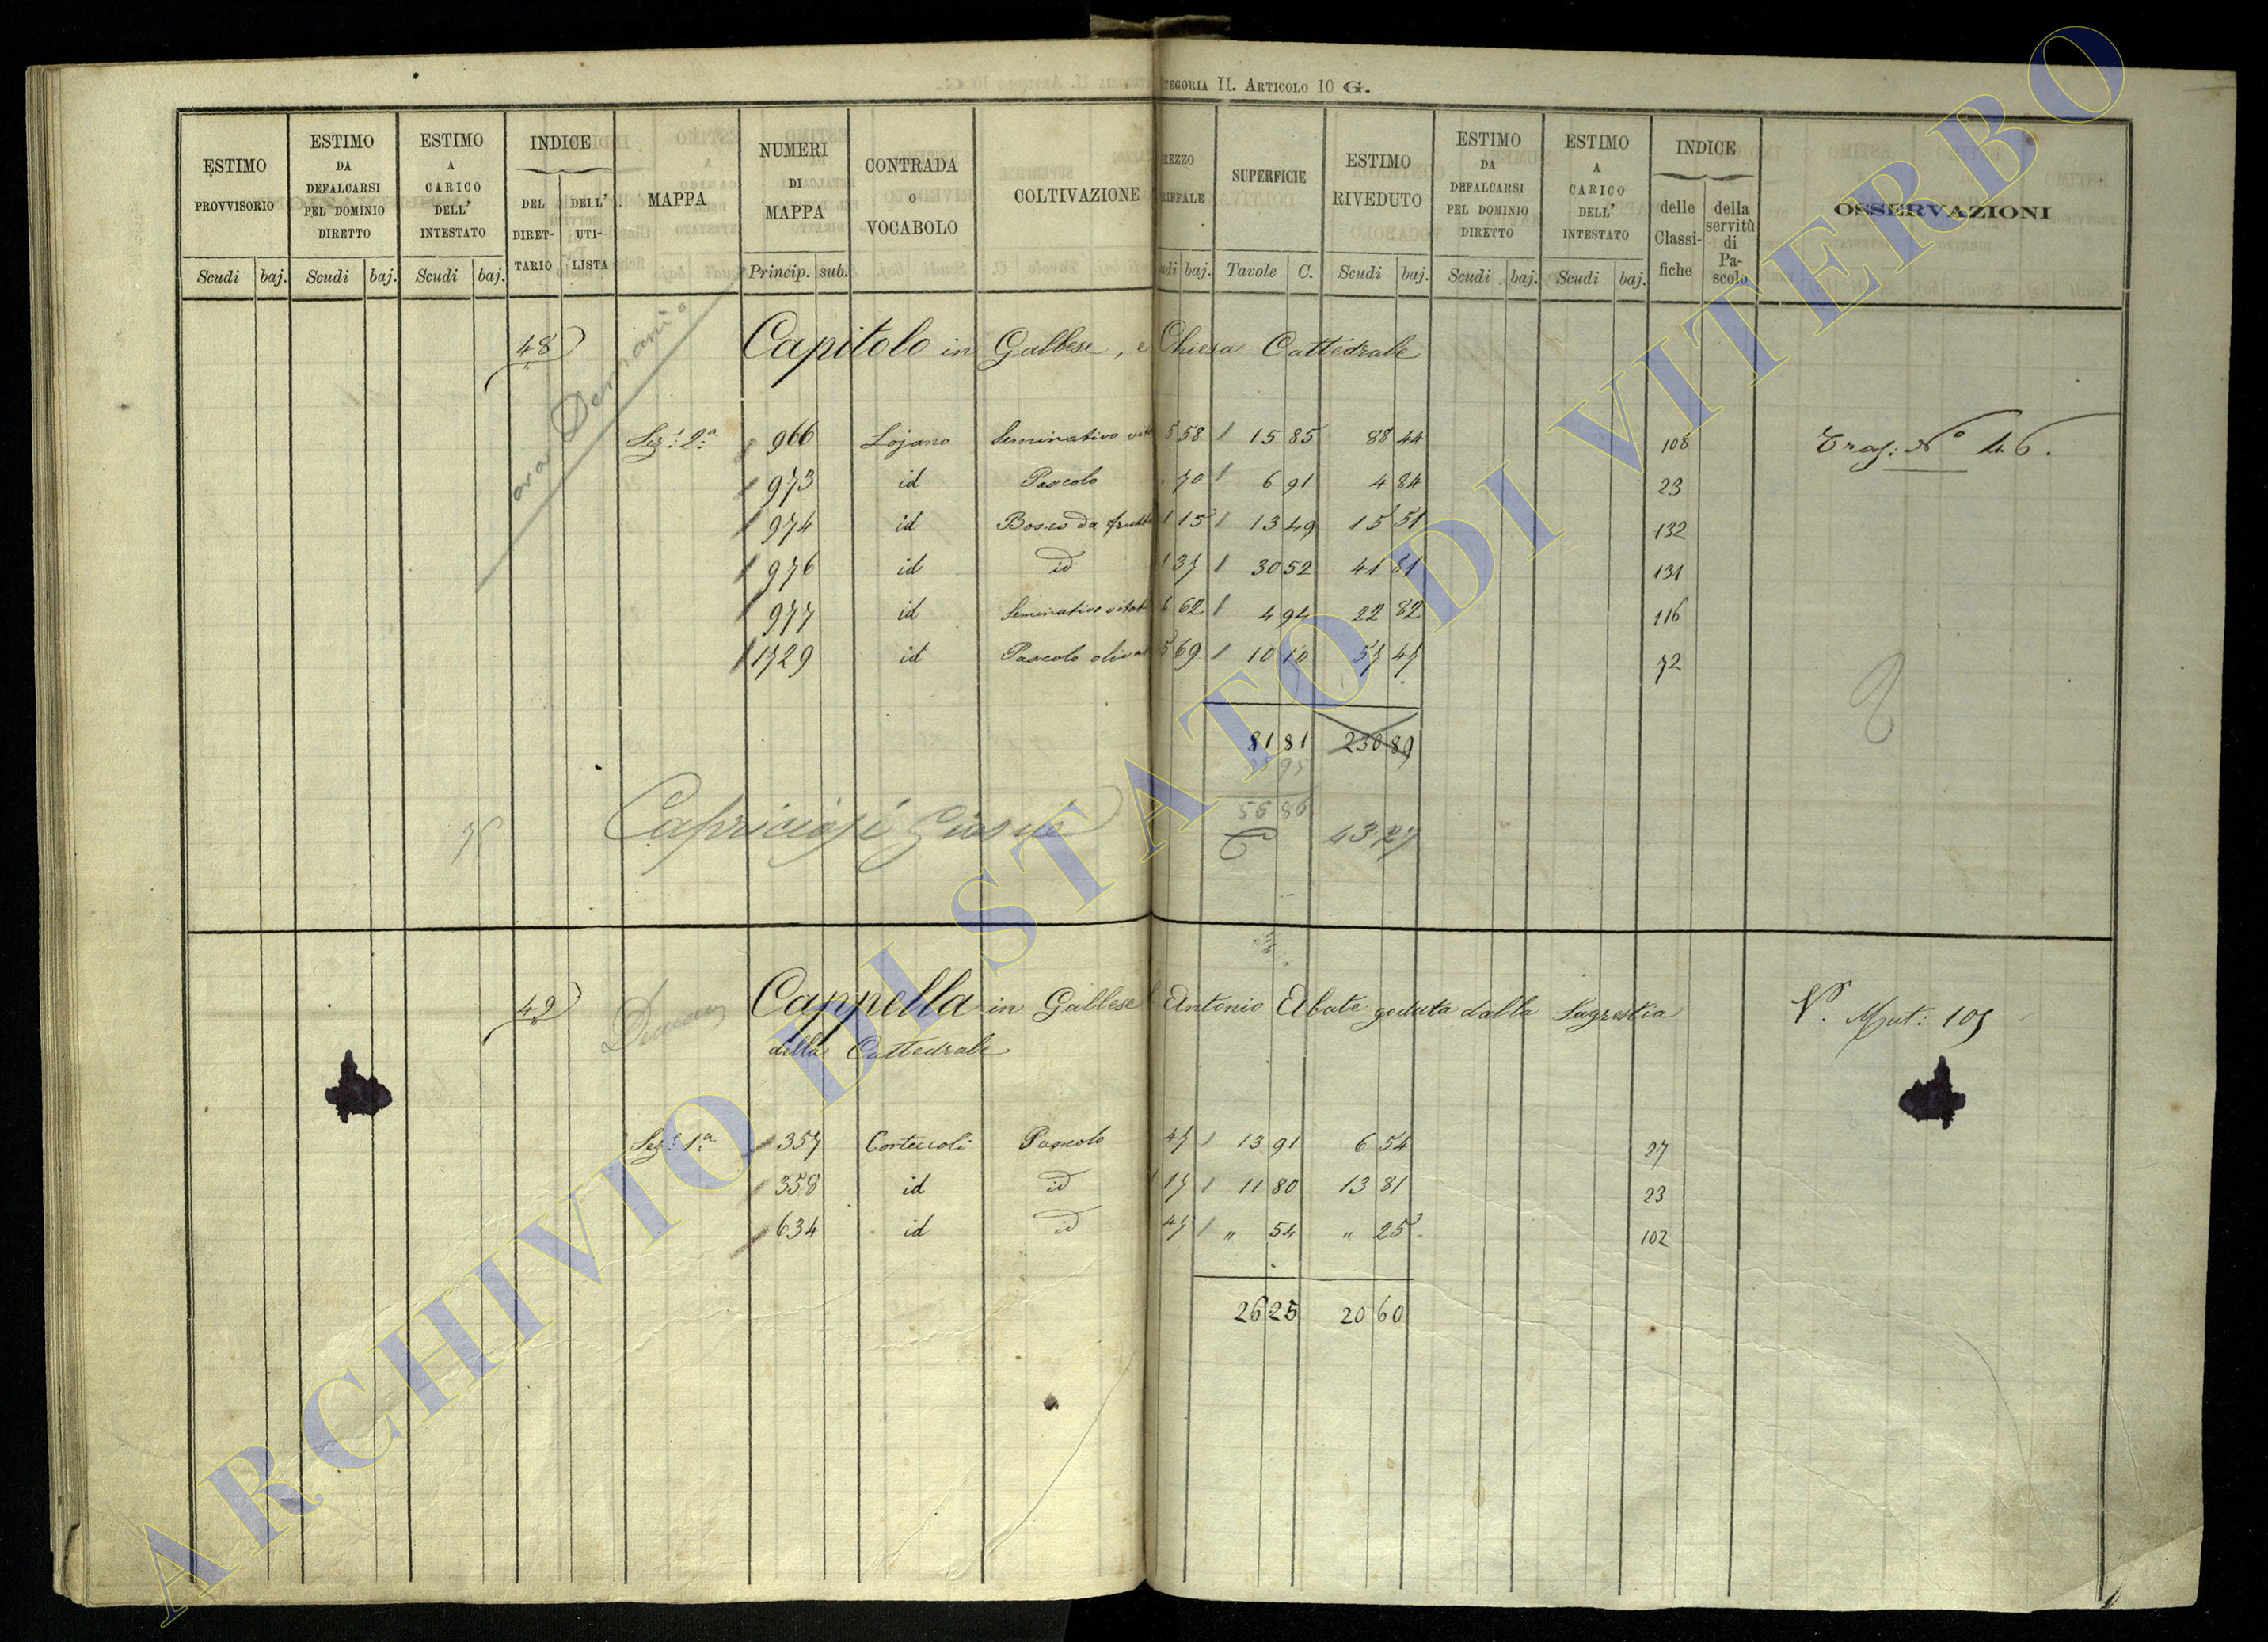 CATEGORIA II. ARTICOLO 10 G.
ESTIMO PROVVISORIO Scudi baj.
ESTIMO DA DEFALCARSI PEL DOMINIO DIRETTO Scudi baj.
ESTIMO A CARICO DELL' INTESTATO Scudi baj.
INDICE DEL DIRETTARIO DELL' UTILISTA
MAPPA
NUMERI DI MAPPA Princip. sub.
CONTRADA O VOCABOLO
COLTIVAZIONE
REZZO RIFFALE udi baj.
SUPERFICIE Tavole C.
ESTIMO RIVEDUTO Scudi baj.
ESTIMO DA DEFALCARSI PEL DOMINIO DIRETTO Scudi baj.
ESTIMO A CARICO DELL' INTESTATO Scudi baj.
INDICE delle Classifiche della servitù di Pascolo
OSSERVAZIONI
48 Capitolo in Gallese, e Chiesa Cattedrale
ora Demanio
Sez: 2a 966 Lojano Seminativo vit 5 58 15 85 88 44 108 Tras: No 46.
973 id Pascolo 70 6 91 4 84 23
974 id Bosco da frutto 1 15 13 49 15 51 132
976 id id 1 37 30 52 41 81 131
977 id Seminativo vitat 4 62 4 94 22 82 116
1729 id Pascolo olivat 5 69 10 10 57 47 72
81 81 230 89
95
56 86
Capriciosi Giosue 43 27
49 Cappella in Gallese Antonio Abate goduta dalla Sagrestia Vo. Mut: 105
della Cattedrale
Sez: 1a 357 Corteccoli Pascolo 47 13 91 6 54 27
358 id id 1 17 11 80 13 81 23
634 id id 47 " 54 " 25 102
26 25 20 60
ARCHIVIO DI STATO DI VITERBO